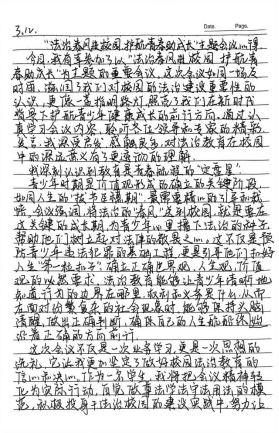 3.12.
Date. Page.
"法治春风进校园,护航青春助成长"主题会议心得
今日,我有幸参加了以"法治春风进校园,护航青
春助成长"为主题的重要会议。这次会议如同一场及
时雨,滋润了我们对校园法治建设重要性的
认识,更像一盏指明路灯,照亮了我们在新时代
背景下护航青少年健康成长的前行方向。通过认
真学习会议内容、聆听各位领导和专家的精彩
发言,我深受启发,感触良多,对法治教育在校园
中的深远意义有了更透彻的理解。
我深刻认识到教育是青春航程的"定盘星"
青少年时期是价值观形成的确立的关键阶段,
如同人生的"拔节孕穗期",最需要精心的引导和栽
培。会议强调,将法治的"春风"送到校园,就是要在
这关键的成长期,为青少年心里播下法治的种子,
帮助他们树立起对法律的敬畏之心。这不仅是预
防青少年违法犯罪的基础工程,更是引导他们扣好
人生"第一粒扣子",确立正确世界观、人生观、价值
观的必然要求。法治教育能够让青少年清晰地
知道行为的边界在哪里,权利和义务是什么,从而
在面对纷繁复杂的社会现象时,能够保持头脑
清醒,做出正确判断,确保自己的人生航船始终
沿着正确的方向前行
这次会议不仅是一次业务学习,更是一次思想的
洗礼。它让我更加坚定了做好校园法治教育的
信心和决心。作为一名学生,我将把会议精神转
化为实际行动,自觉做尊法学法守法用法的模
范,积极投身于法治校园的建设实践中,努力让